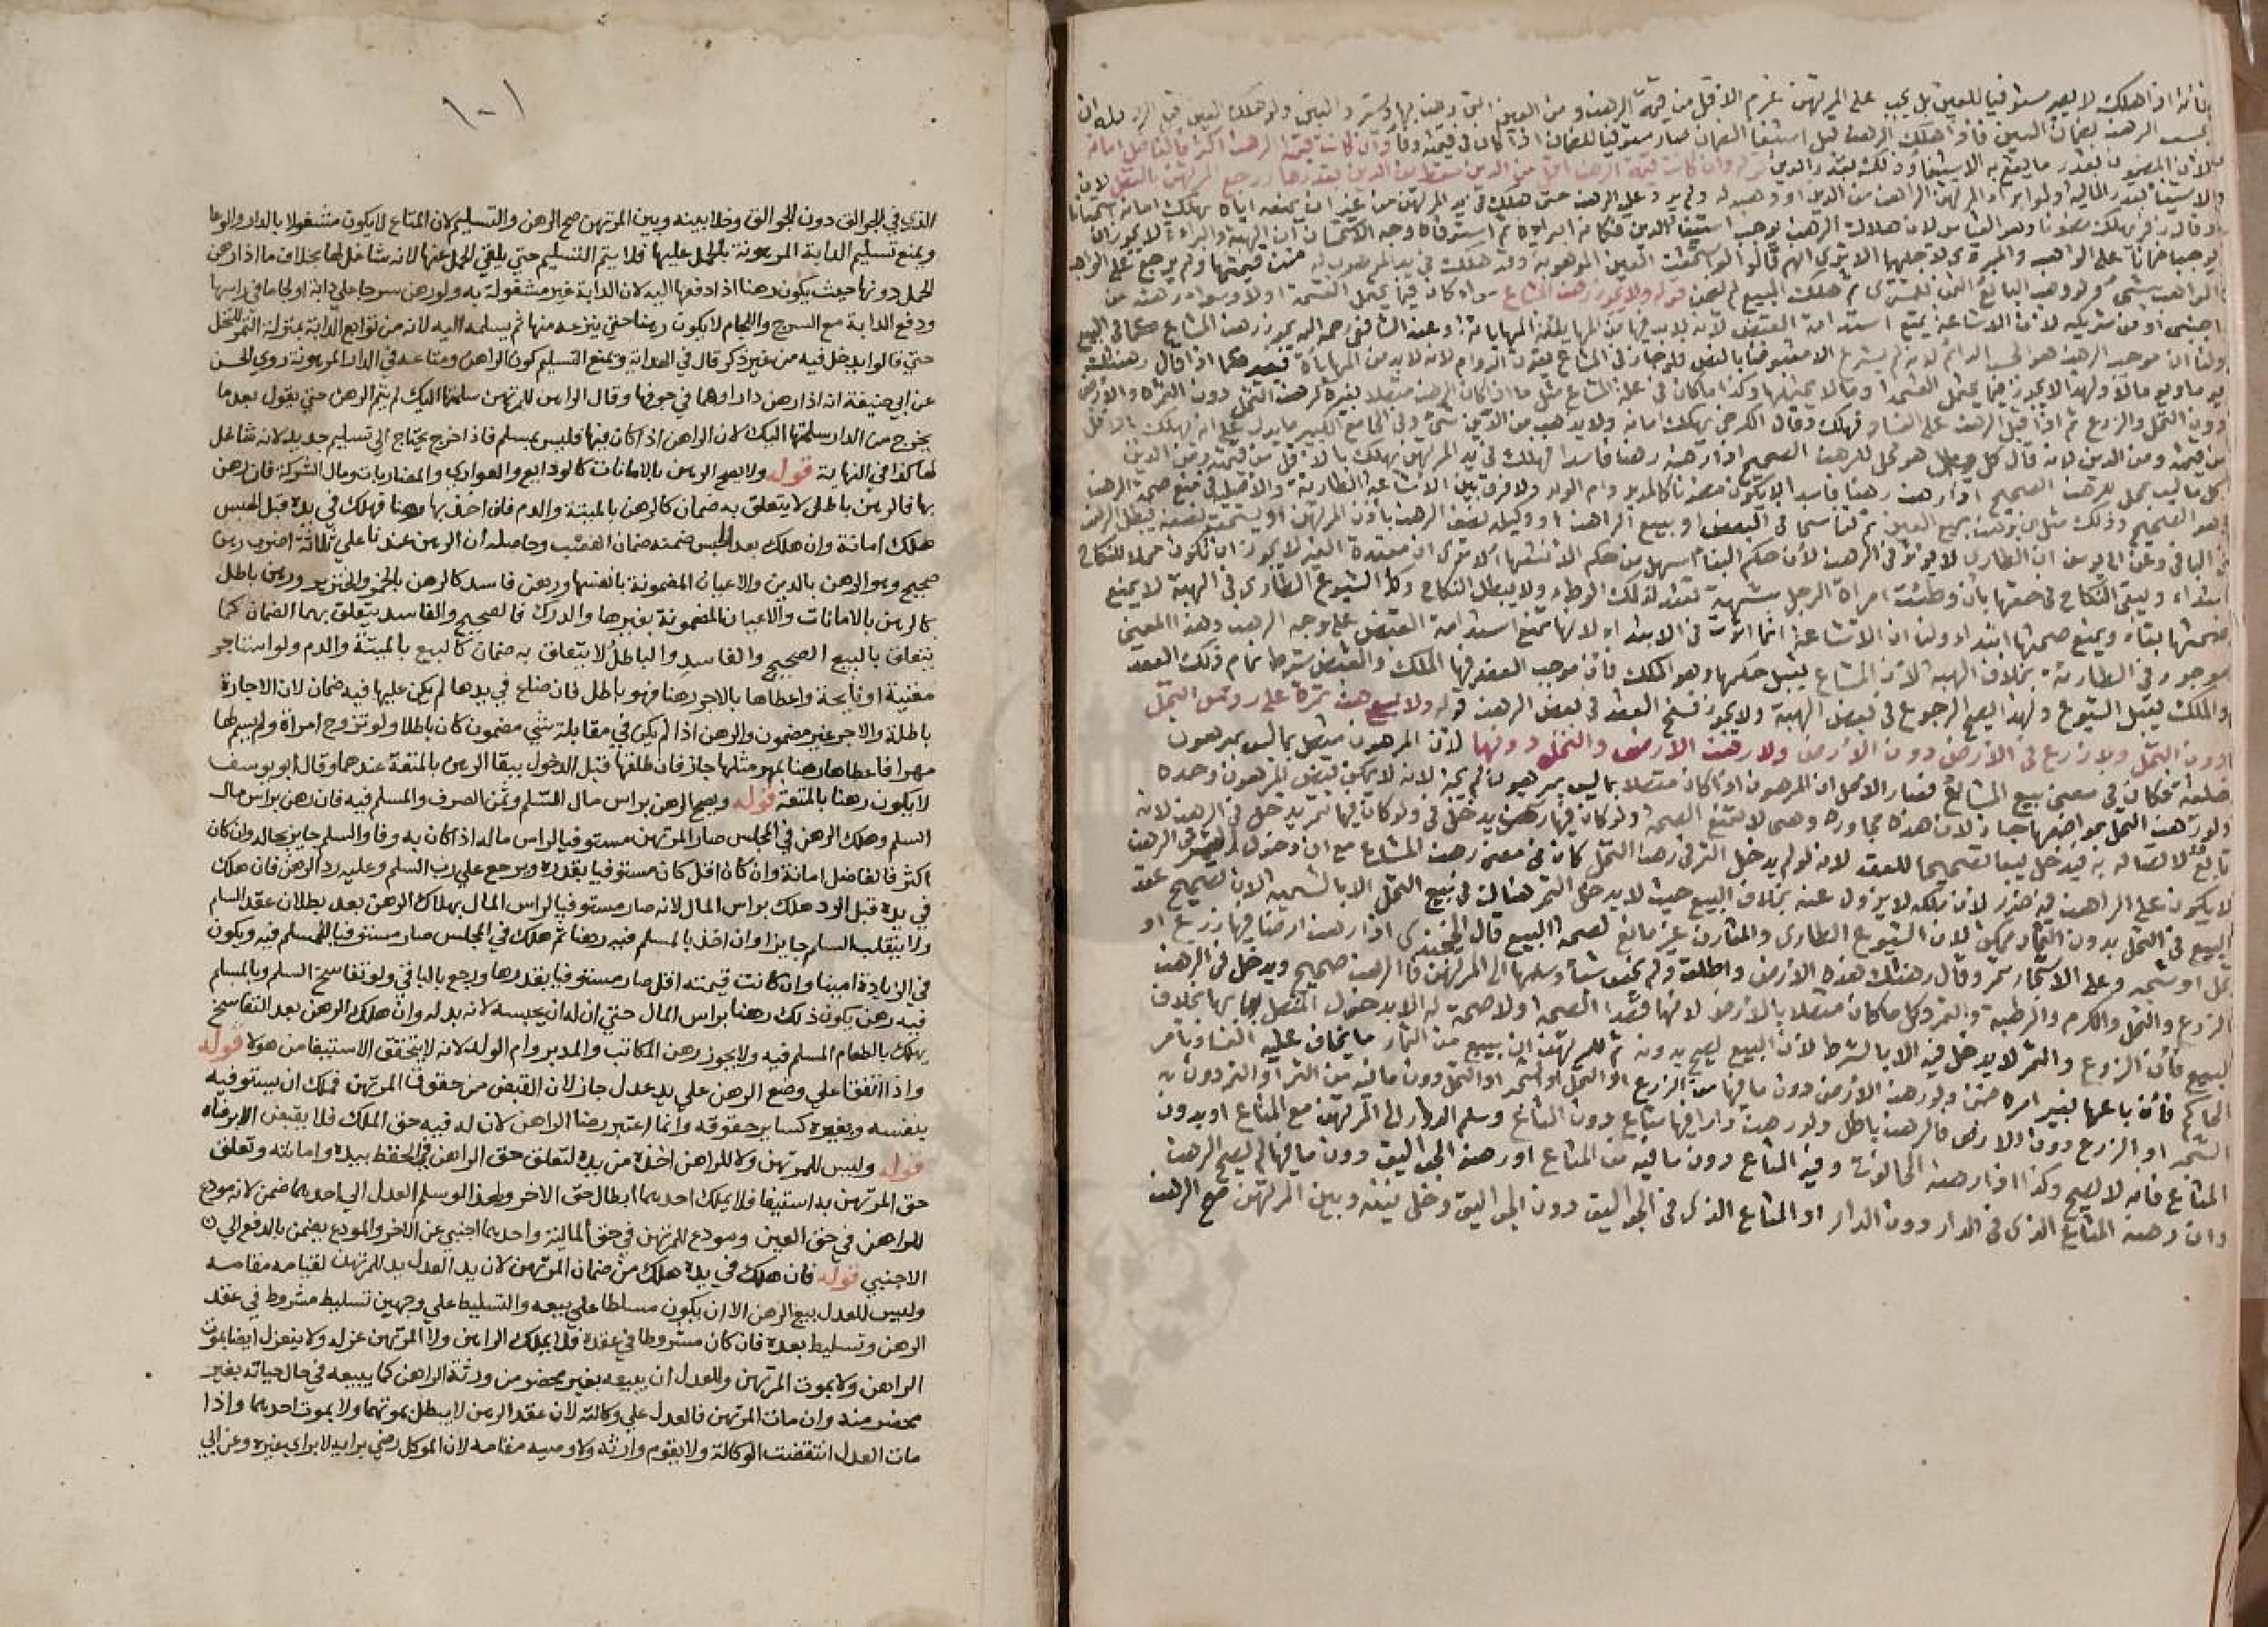 فانه اذا هلك لا يصير مستوفيا للعين بل يجب على المرتهن غرم الاقل من قيمة الرهن ومن العين التي رهن بها ويسترد العين ولو هلك العين قبل الرد
يحبس الرهن بضمان العين فاذا هلك الرهن قبل استيفا الضمان صار مستوفيا للضمان اذا كان في قيمته وفا وان كانت قيمة الرهن اكثر فالفاضل امانة
لان المضمون بقدر ما يقع به الاستيفا وذلك بقدر الدين قوله وان كانت قيمة الرهن اقل من الدين سقط من الدين بقدرها ورجع المرتهن بالفضل لان
الاستيفا بقدر المالية ولو ابراء المرتهن الراهن من الدين او وهبه له ولم يرد عليه الرهن حتى هلك في يد المرتهن من غير ان يمنعه اياه يهلك امانة استحسانا
وقال زفر يهلك مضمونا وهو القياس لان هلاك الرهن يوجب استيفا الدين فكانه ابراه ثم استوفاه وجه الاستحسان ان الهبة والبراءة لا يجوز ان
يوجبا ضمانا على الواهب والمبرى لاجلهما الا ترى انهم قالوا لو استحقت العين الموهوبة وقد هلكت في يد الموهوب له ضمن قيمتها ولم يرجع على الواهب
الراهن بشي ولو وهب البائع الثمن للمشترى ثم هلك المبيع لم يضمن قوله ولا يجوز رهن المشاع سواء كان فيما يحتمل القسمة او لا وسواء رهنه من
اجنبي او من شريكه لان الاشاعة يمنع استدامة القبض لانه لا بد فيها من المهاياة وعند الشافعي رحمه الله يجوز رهن المشاع
ولنا ان موجب الرهن هو الحبس الدائم لانه لم يشرع الا مقبوضا بالنص فلو جاز في المشاع يفوت الدوام لانه لا بد من المهاياة فيصير كما اذا قال رهنتك
يوما ويوما لا ولهذا لا يجوز فيما يحتمل القسمة وما لا يحتملها وكذا ما كان في علة المشاع مثل ما اذا كان الرهن متصلا بغيره كرهن النخل دون الثمرة والارض
دون النخل والزرع ثم اذا قبل الرهن على الفساد فهلك وقال الكرخي يهلك امانة ولا يذهب من الدين شي وفي الجامع الكبير ما يدل على انه يهلك بالاقل
من قيمته ومن الدين لانه قال كل هو محل للرهن الصحيح اذا رهنه رهنا فاسدا فهلك في يد المرتهن يهلك بالاقل من قيمته ومن الدين
كل ما ليس بمحل للرهن الصحيح اذا رهن رهنا فاسدا لا يكون مضمونا كالمدبر وام الولد ولا فرق بين الاشاعة الطارئة والاصلية في منع صحة الرهن
هو الصحيح وذلك مثل ان يرهن جميع العين ثم تفاسخا في البعض او يبيع الراهن او وكيله نصف الرهن باذن المرتهن او يستحق نصفه فيبطل الرهن
في الباقي وعن ابي يوسف ان الطارى لا يوثر في الرهن لان حكم البقا اسهل من حكم الابتدا الا ترى ان معتدة الغير لا يجوز ان تكون محلا للنكاح
ابتداء ويبقى النكاح في حقها بان وطئت امراة الرجل بشبهة تعتد لذلك الوطء ولا يبطل النكاح وكذا الشيوع الطارى في الهبة لا يمنع
صحتها بقاء ويمنع صحتها ابتداء ولنا ان الاشاعة انما اثرت في الابتداء لانها تمنع استدامة القبض على وجه الرهن وهذا المعنى
موجود في الطارئة بخلاف الهبة لان المشاع يقبل حكمها وهو الملك فان موجب العقد فيها الملك والقبض شرط تمام ذلك العقد
والملك يقبل الشيوع ولهذا يصح الرجوع في بعض الهبة ولا يجوز فسخ العقد في بعض الرهن قوله ولا يصح رهن ثمرة على روس النخل
دون النخل ولا زرع في الارض دون الارض ولا رهن الارض والنخل دونها لان المرهون متصل بما ليس بمرهون
خلقة فكان في معنى بيع المشائع فصار الاصل ان المرهون اذا كان متصلا بما ليس بمرهون لم يجز لانه لا يمكن قبض المرهون وحده
ولو رهن النخل بمواضعها جاز لان هذه مجاورة وهي لا تمنع الصحة ولو كان فيها ثمر يدخل في الرهن لانه
تابع لاتصاله به فيدخل تبعا تصحيحا للعقد لانه لو لم يدخل الثمر في رهن النخل كان في معنى رهن المشاع مع ان دخول الثمر في الرهن
لا يكون على الراهن فيه ضرر لان ملكه لا يزول عنه بخلاف البيع حيث لا يدخل الثمر هناك في بيع النخل الا بالتسمية لان تصحيح عقد
البيع في النخل بدون الثمار ممكن لان الشيوع الطارى والمقارن غير مانع لصحة البيع قال الخجندى اذا رهن ارضا فيها زرع او
نخل او شجر وعلى الاشجار ثمر وقال رهنتك هذه الارض واطلق ولم يخص شيا وسلمها الى المرتهن فالرهن صحيح ويدخل في الرهن
الزرع والنخل والكرم والرطبة والثمر وكل ما كان متصلا بالارض لانهما قصدا الصحة ولا صحة له الا بدخول المتصل بها بخلاف
البيع فان الزرع والثمر لا يدخل فيه الا بالشرط لان البيع يصح بدونه ثم للمرتهن ان يبيع من الثمار ما يخاف عليه الفساد بامر
الحاكم فان باعها بغير امره ضمن ولو رهن الارض دون ما فيها من الزرع او النخل او الشجر او النخل دون ما فيه من الثمر او الثمر دون
الشجر او الزرع دون الارض فالرهن باطل ولو رهن دارا فيها متاع دون المتاع وسلم الدار الى المرتهن مع المتاع او بدون
المتاع فانه لا يصح وكذا اذا رهنه الحانوت وفيه المتاع دون ما فيه من المتاع او رهن الجواليق دون ما فيها لم يصح الرهن
وان رهنه المتاع الذى في الدار دون الدار او المتاع الذى في الجواليق دون الجواليق وخلى بينه وبين المرتهن صح الرهن
١٠١
الذي في الجوالق دون الجوالق وخلا بينه وبين المرتهن صح الرهن والتسليم لان المتاع لا يكون مشغولا بالدار والوعا
ويمنع تسليم الدابة المرهونة بالحمل عليها فلا يتم التسليم حتي يلقي الحمل عنها لانه شاغل لها بخلاف ما اذا رهن
الحمل دونها حيث يكون رهنا اذا دفعها اليه لان الدابة غير مشغولة به ولو رهن سرجا علي دابة او لجاما في راسها
ودفع الدابة مع السرج واللجام لا يكون رهنا حتي ينزعه منها ثم يسلمه اليه لانه من توابع الدابة بمنزلة الثمر للنخل
حتي قالوا يدخل فيه من غير ذكر قال في الهداية ويمنع التسليم كون الراهن ومتاعه في الدار المرهونة روي الحسن
عن ابي حنيفة انه اذا رهن دارا وهما في جوفها وقال الراهن للمرتهن سلمتها اليك لم يتم الرهن حتي يقول بعد ما
يخرج من الدار سلمتها اليك لان الراهن اذا كان فيها فليس بمسلم فاذا خرج يحتاج الي تسليم جديد لانه شاغل
لها كذا في النهاية قوله ولا يصح الرهن بالامانات كالودايع والعواري والمضاربات ومال الشركة فان رهن
بها فالرهن باطل لا يتعلق به ضمان كالرهن بالميتة والدم فان اخذ بها رهنا فهلك في يده قبل الحبس
هلك امانة وان هلك بعد الحبس ضمنه ضمان الغصب وحاصله ان الرهن عندنا علي ثلاثة اضرب رهن
صحيح وهو الرهن بالدين والاعيان المضمونة بانفسها ورهن فاسد كالرهن بالخمر والخنزير ورهن باطل
كالرهن بالامانات والاعيان المضمونة بغيرها والدرك فالصحيح والفاسد يتعلق بهما الضمان كما
يتعلق بالبيع الصحيح والفاسد والباطل لا يتعلق به ضمان كالبيع بالميتة والدم ولو استاجر
مغنية او نايحة واعطاها بالاجر رهنا فهو باطل فان ضاع في يدها لم يكن عليها فيه ضمان لان الاجارة
باطلة والاجر غير مضمون والرهن اذا لم يكن في مقابلة شي مضمون كان باطلا ولو تزوج امراة ولم يسم لها
مهرا فاعطاها رهنا بمهر مثلها جاز فان طلقها قبل الدخول يبقا الرهن بالمتعة عندهما وقال ابو يوسف
لا يكون رهنا بالمتعة قوله ويصح الرهن براس مال السلم وثمن الصرف والمسلم فيه فان رهن براس مال
السلم وهلك الرهن في المجلس صار المرتهن مستوفيا لراس ماله اذا كان به وفا والسلم جايز بحاله وان كان
اكثر فالفاضل امانة وان كان اقل كان مستوفيا بقدره ويرجع علي رب السلم وعليه رد الرهن فان هلك
في يده قبل الرد هلك براس المال لانه صار مستوفيا لراس المال بهلاك الرهن بعد بطلان عقد السلم
ولا ينقلب السلم جايزا وان اخذ بالمسلم فيه رهنا ثم هلك في المجلس صار مستوفيا للمسلم فيه ويكون
في الزيادة امينا وان كانت قيمته اقل صار مستوفيا بقدرها ورجع بالباقي ولو تفاسخا السلم وبالمسلم
فيه رهن يكون ذلك رهنا براس المال حتي ان له ان يحبسه لانه بدله وان هلك الرهن بعد التفاسخ
يهلك بالطعام المسلم فيه ولا يجوز رهن المكاتب والمدبر وام الولد لانه لا يتحقق الاستيفا من هولا قوله
واذا اتفقا علي وضع الرهن علي يد عدل جاز لان القبض من حقوق المرتهن فملك ان يستوفيه
بنفسه وبغيره كساير حقوقه وانما اعتبر رضا الراهن لان له فيه حق الملك فلا يقبض الا برضاه
قوله وليس للمرتهن ولا للراهن اخذه من يده لتعلق حق الراهن في الحفظ بيده وامانته وتعلق
حق المرتهن به استيفا فلا يملك احدهما ابطال حق الاخر ولهذا لو سلم العدل الي احدهما ضمن لانه مودع
للراهن في حق العين ومودع للمرتهن في حق المالية واحدهما اجنبي عن الاخر والمودع يضمن بالدفع الي
الاجنبي قوله فان هلك في يده هلك من ضمان المرتهن لان يد العدل يد للمرتهن لقيامه مقامه
وليس للعدل بيع الرهن الا ان يكون مسلطا علي بيعه والتسليط علي وجهين تسليط مشروط في عقد
الرهن وتسليط بعده فان كان مشروطا في عقده فلا يملك الراهن ولا المرتهن عزله ولا ينعزل ايضا بموت
الراهن ولا بموت المرتهن وللعدل ان يبيعه بغير محضر من ورثة الراهن كما يبيعه في حال حياته بغير
محضر منه وان مات المرتهن فالعدل علي وكالته لان عقد الرهن لا يبطل بموتهما ولا بموت احدهما واذا
مات العدل انتقضت الوكالة ولا يقوم وارثه ولا وصيه مقامه لان الموكل رضي برايه لا براي غيره وعن ابي